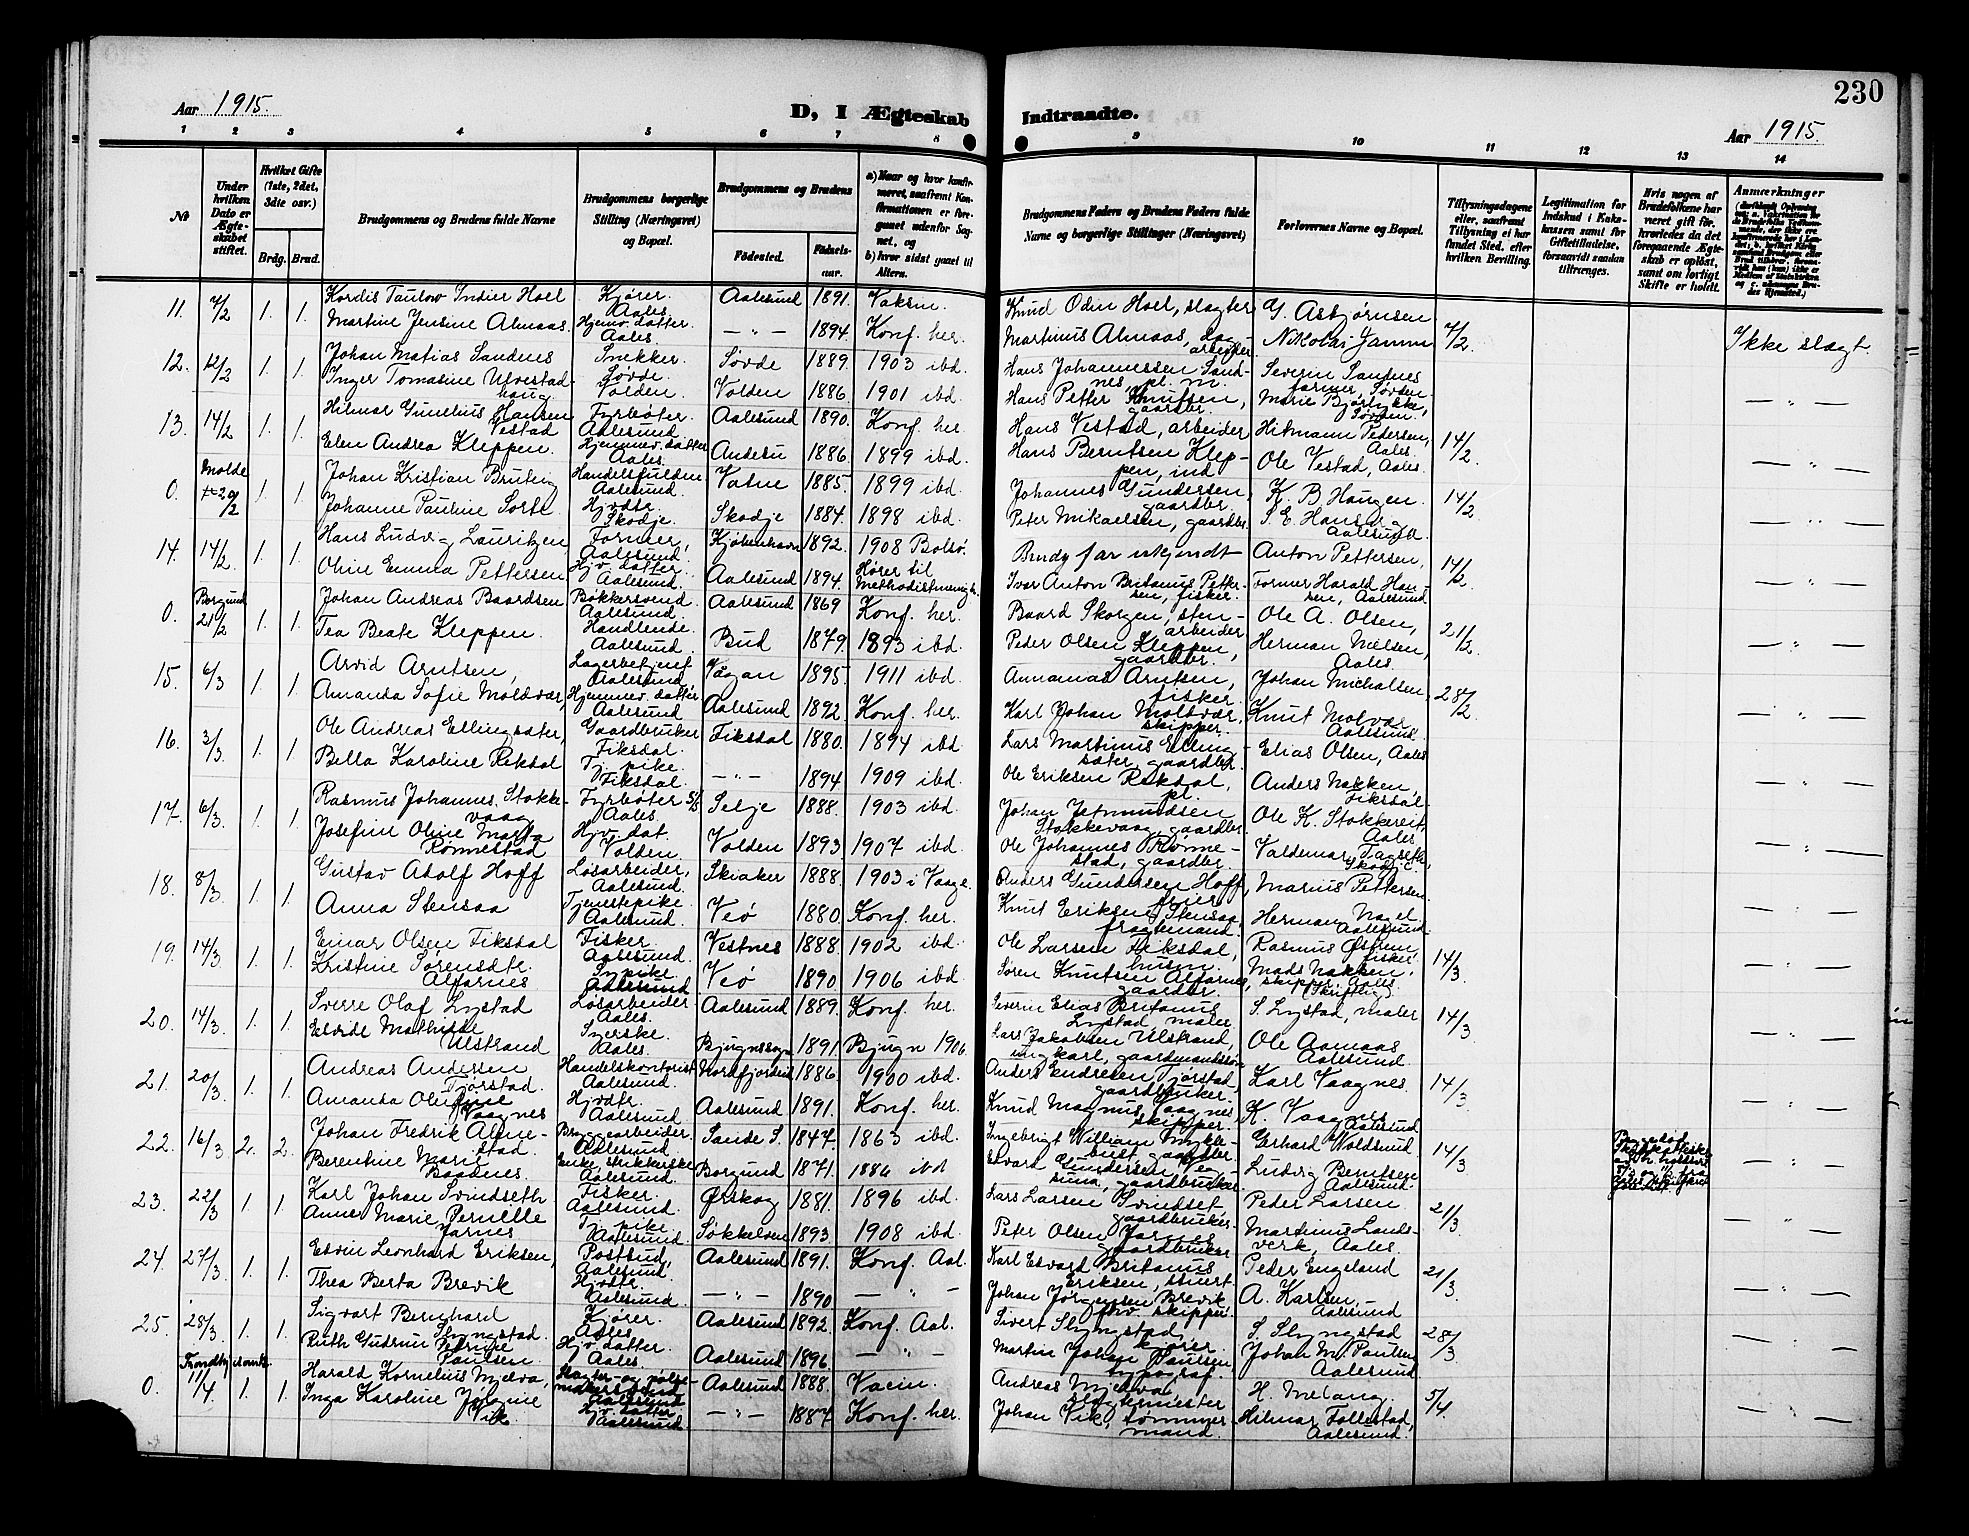 230
Aar 1915.
D, I Ægteskab Indtraadte.
Aar 1915.
1 2 3 4 5 6 7 8 9 10 11 12 13 14
№
Under hvilken Dato er Ægteskabet stiftet.
Hvilket Gifte (1ste, 2det, 3die osv.)
Brdg. Brud.
Brudgommens og Brudens fulde Navne
Brudgommens borgerlige Stilling (Næringsvei) og Bopæl.
Brudgommens og Brudens
Fødested.
Fødselsaar.
a) Naar og hvor konfirmeret, saafremt Konfirmationen er foregaaet udenfor Sognet, og
b) hvor sidst gaaet til Alters.
Brudgommens Faders og Brudens Faders fulde Navne og borgerlige Stillinger (Næringsvei)
Forlovernes Navne og Bopæl.
Tillysningsdagene eller, saafremt Tillysning ei har fundet Sted, efter hvilken Bevilling.
Legitimation for Indskud i Enkekassen samt for Giftetilladelse, forsaavidt saadan tiltrænges.
Hvis nogen af Brudefolkene har været gift før, hvorledes da det foregaaende Ægteskab er opløst, samt om lovligt Skifte er holdt.
Anmærkninger
11. 7/2 1. 1. Kordis Taulow Indier Hoel Kjører. Aales. Aalesund 1891. Vaksin. Knud Odin Hoel, slagter G. Asbjørnsen 7/2
Martine Jensine Almaas. Hjemv. datter. Aales. — " — 1894. Konf. her. Martinus Almaas, dagarbeider. Nikolai Jamne Ikke slægt.
12. 12/2 1. 1. Johan Matias Sandnes Snekker. Søvde. Søvde 1889. 1903 ibd. Hans Johannessen Sandnes, pl. m. Severin Sandnes farmer, Søvden
Inger Tomasine Ulvestadhaug Volden Volden 1886 1901 ibd. Hans Petter Knutsen, gaardbr. Marie Bjørnøkke, Søvden. — " —
13. 14/2 1. 1. Hilmar Gunelius Hansen Vestad Fyrbøter. Aalesund Aalesund 1890. Konf. her Hans Vestad, arbeider Hitmann Pedersen, Aales. 14/2
Elen Andrea Kleppen. Hjemmev. datter Aales. 1886 1899 ibd. Hans Berntsen Kleppen, ind Ole Vestad, Aales. — " —
0. Molde 20/2 1. 1. Johan Kristian Aalesund. Vatne 1885. 1899 ibd. Johannes Gundersen, gaardbr. K. B. Haugen. 14/2
Johanne Pauline Sorte. Hjvdtr. Skodje. Skodje 1884. 1898 ibd. Peter Mikaelsen, gaardbr. S. E. Aalesund. — " —
14. 14/2 1. 1. Hans Ludvig Lauritzen Former, Aalesund. Kjøbenhavn 1892. 1908 Bolsø. Brudg far ukjendt Anton Pettersen, 14/2
Oline Emma Pettersen Hjv. datter. Aalesund. Aalesund 1894. Hører til Methodistmenigh. Ivar Anton Britanus Pettersen, fisker. Former Harald Hansen, Aalesund — " —
0. Borgund 21/2 1. 1. Johan Andreas Baardsen Bøkkersvend. Aalesund Aalesund 1869 Konf. her. Baard Skorgen, stenarbeider Ole A. Olsen, 21/2
Tea Beate Kleppen. Handlende. Aalesund. Bud 1879. 1893 ibd. Peder Olsen Kleppen, gaardbr. Herman Nielsen, Aales. — " —
15. 6/3 1. 1. Arvid Arntsen, Lagerbetjent Aalesund, Vågan 1895. 1911 ibd. Annanias Arntsen, fisker. Johan Michalsen 28/2
Amanda Sofie Moldvær, Hjemmev. datter Aalesund Aalesund 1892 Konf. her. Karl Johan Moldvær, skipper. Knut Molvær Aalesund. — " —
16. 3/3 1. 1. Ole Andreas Ellingsæter, Gaardbruker Fiksdal. Fiksdal 1880. 1894 ibd Lars Martinus Ellingsæter, gaardbr. Elias Olsen, Aales
Bella Karoline Rekdal Tj. pike. Fiksdal. — " — 1894 1909 ibd. Ole Eriksen Rekdal, pl. Anders Nakken, Fiksdal. — " —
17. 6/3 1. 1. Rasmus Johannes Stokkevaag Fyrbøter S/S Aales. Selje 1888. 1903 ibd. Johan Jetmundsen Stokkevaag, gaardbr. Ole K. Stokkereit, Aales
Josefine Oline Marta Rønnestad Hjv. dat. Volden. Volden 1893 1907 ibd. Ole Johannes Rønnestad, gaardbr. Valdemar Fagseth, — " —
18. 8/3 1. 1. Gustav Adolf Hoff Løsarbeider, Aalesund. Skiaker 1888. 1903 i Vaage. Anders Gundersen Hoff, Marius Pettersen
Anna Stensaa Tjenestepike. Aalesund. Veø 1880 Konf. her. Knut Eriksen Stensaa, Herman Nagel Aalesund. — " —
19. 14/3 1. 1. Einar Olsen Fiksdal Fisker. Aalesund. Vestnes 1888. 1902 ibd. Ole Larsen Fiksdal, husm. Rasmus Østrem, fisker. 14/3
Kristine Sørensdtr. Alfarnes Sypike Aalesund Veø 1890. 1906 ibd. Søren Knutsen Alfarnes, gaardbr. Mads Nakken, skipper, Aales. (Skriftlig). — " —
20. 14/3 1. 1. Sverre Olaf Lystad Løsarbeider Aales. Aalesund 1889. Konf. her. Severin Elias Britanus Lystad, maler S. Lystad, maler 14/3
Elvide Mathilde Ulstrand Syerske. Aales. Bjugnssogn 1891. Bjugn 1906. Lars Jakobsen Ulstrand, ungkarl, gaardmandssøn Ole Aamaas Aalesund. — " —
21. 20/3 1. 1. Andreas Andersen Tjørstad. Handelskontorist Aalesund. Nordfjordeid 1886 1900 ibd. Anders Endresen Tjørstad gaardbruker. Karl Vaagnes. 14/3
Amanda Oluffine Vaagnes Hjvdtr. Aalesund Aalesund 1891. Konf. her. Knud Magnus Vaagnes skipper. K. Vaagnes Aalesund — " —
22. 16/3 2. 2. Johan Fredrik Almestad. Bryggearbeider. Aalesund. Sande S. 1847. 1863 ibd. Ingebrigt William Myklebust gaardbr. Gerhard Woldsund. 14/3
Berentine Marie Raadnes. Enke, strikkerske Aalesund. Borgund 1871 1886 ibd Edvard Gundersen gaardbruker Ludvig Berntsen Aalesund. — " —
23. 22/3 1. 1. Karl Johan Svindseth Fisker. Aalesund. Ørskog 1881. 1896 ibd. Lars Larsen Svindset gaardbruker. Peder Larsen 21/3
Anne Marie Pernille Jarnes Tj. pike. Aalesund. Søkkelven 1893 1908 ibd. Peter Olsen Jarnes gaardbruker Martinus Landsverk, Aales. — " —
24. 27/3 1. 1. Edvin Leonhard Eriksen, Postbud, Aalesund. Aalesund 1891. Konf. Aal. Karl Edvard Britanus Eriksen, stuert. Peder Engeland 21/3
Thea Berta Brevik Hjvdtr. Aalesund. — " — 1890 — " — Johan Jørgensen Brevik fhv. skipper. A. Karlsen, Aalesund — " —
25. 28/3 1. 1. Sigvart Bernhard Slyngstad. Kjører. Aales. Aalesund 1892. Konf. Aal. Sivert Slyngstad, kjører. S. Slyngstad 28/3
Ruth Gudrun Petrine Paulsen Hjv. datter Aales. Aalesund 1896. — " — Martin Johan Paulsen typograf. Johan M. Paulsen Aalesund — " —
0. Trondhj. domk. 11/4 1. 1. Harald Kornelius Mjelva, Slagter- og pølsemakersvend Aalesund Aalesund 1888. Vacin. Andreas Mjelva, slagtermester H. Melang. 5/4
Inga Karoline Jørgine Vik Hjv. datter Aalesund. — " — 1887 Konf. her. Johan Vik, tømmermand. Hilmar Follestad, Aalesund. — " —